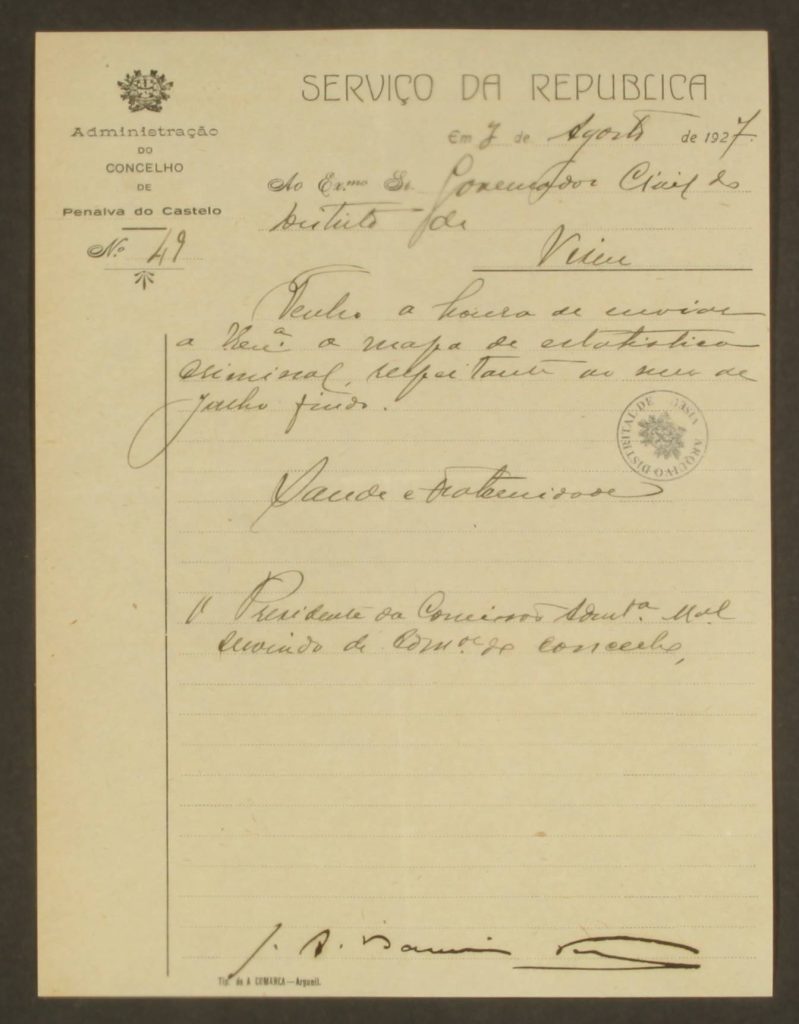 SERVIÇO DA REPUBLICA
Administração
DO
CONCELHO
DE
Penalva do Castelo
Nº 49
Em 7 de Agosto de 1927.
Ao Ex.mo Sr. Governador Civil do
Distrito de
Viseu
Tenho a honra de enviar
a V. Ex.ª o mapa de estatistica
criminal, respeitante ao mes de
Julho findo.
Saude e Fraternidade
O Presidente da Comissão Admt.ª M.al
servindo de Adm.or do concelho,
J. A.
ARQUIVO DISTRITAL DE
Tip. de A COMARCA—Arganil.